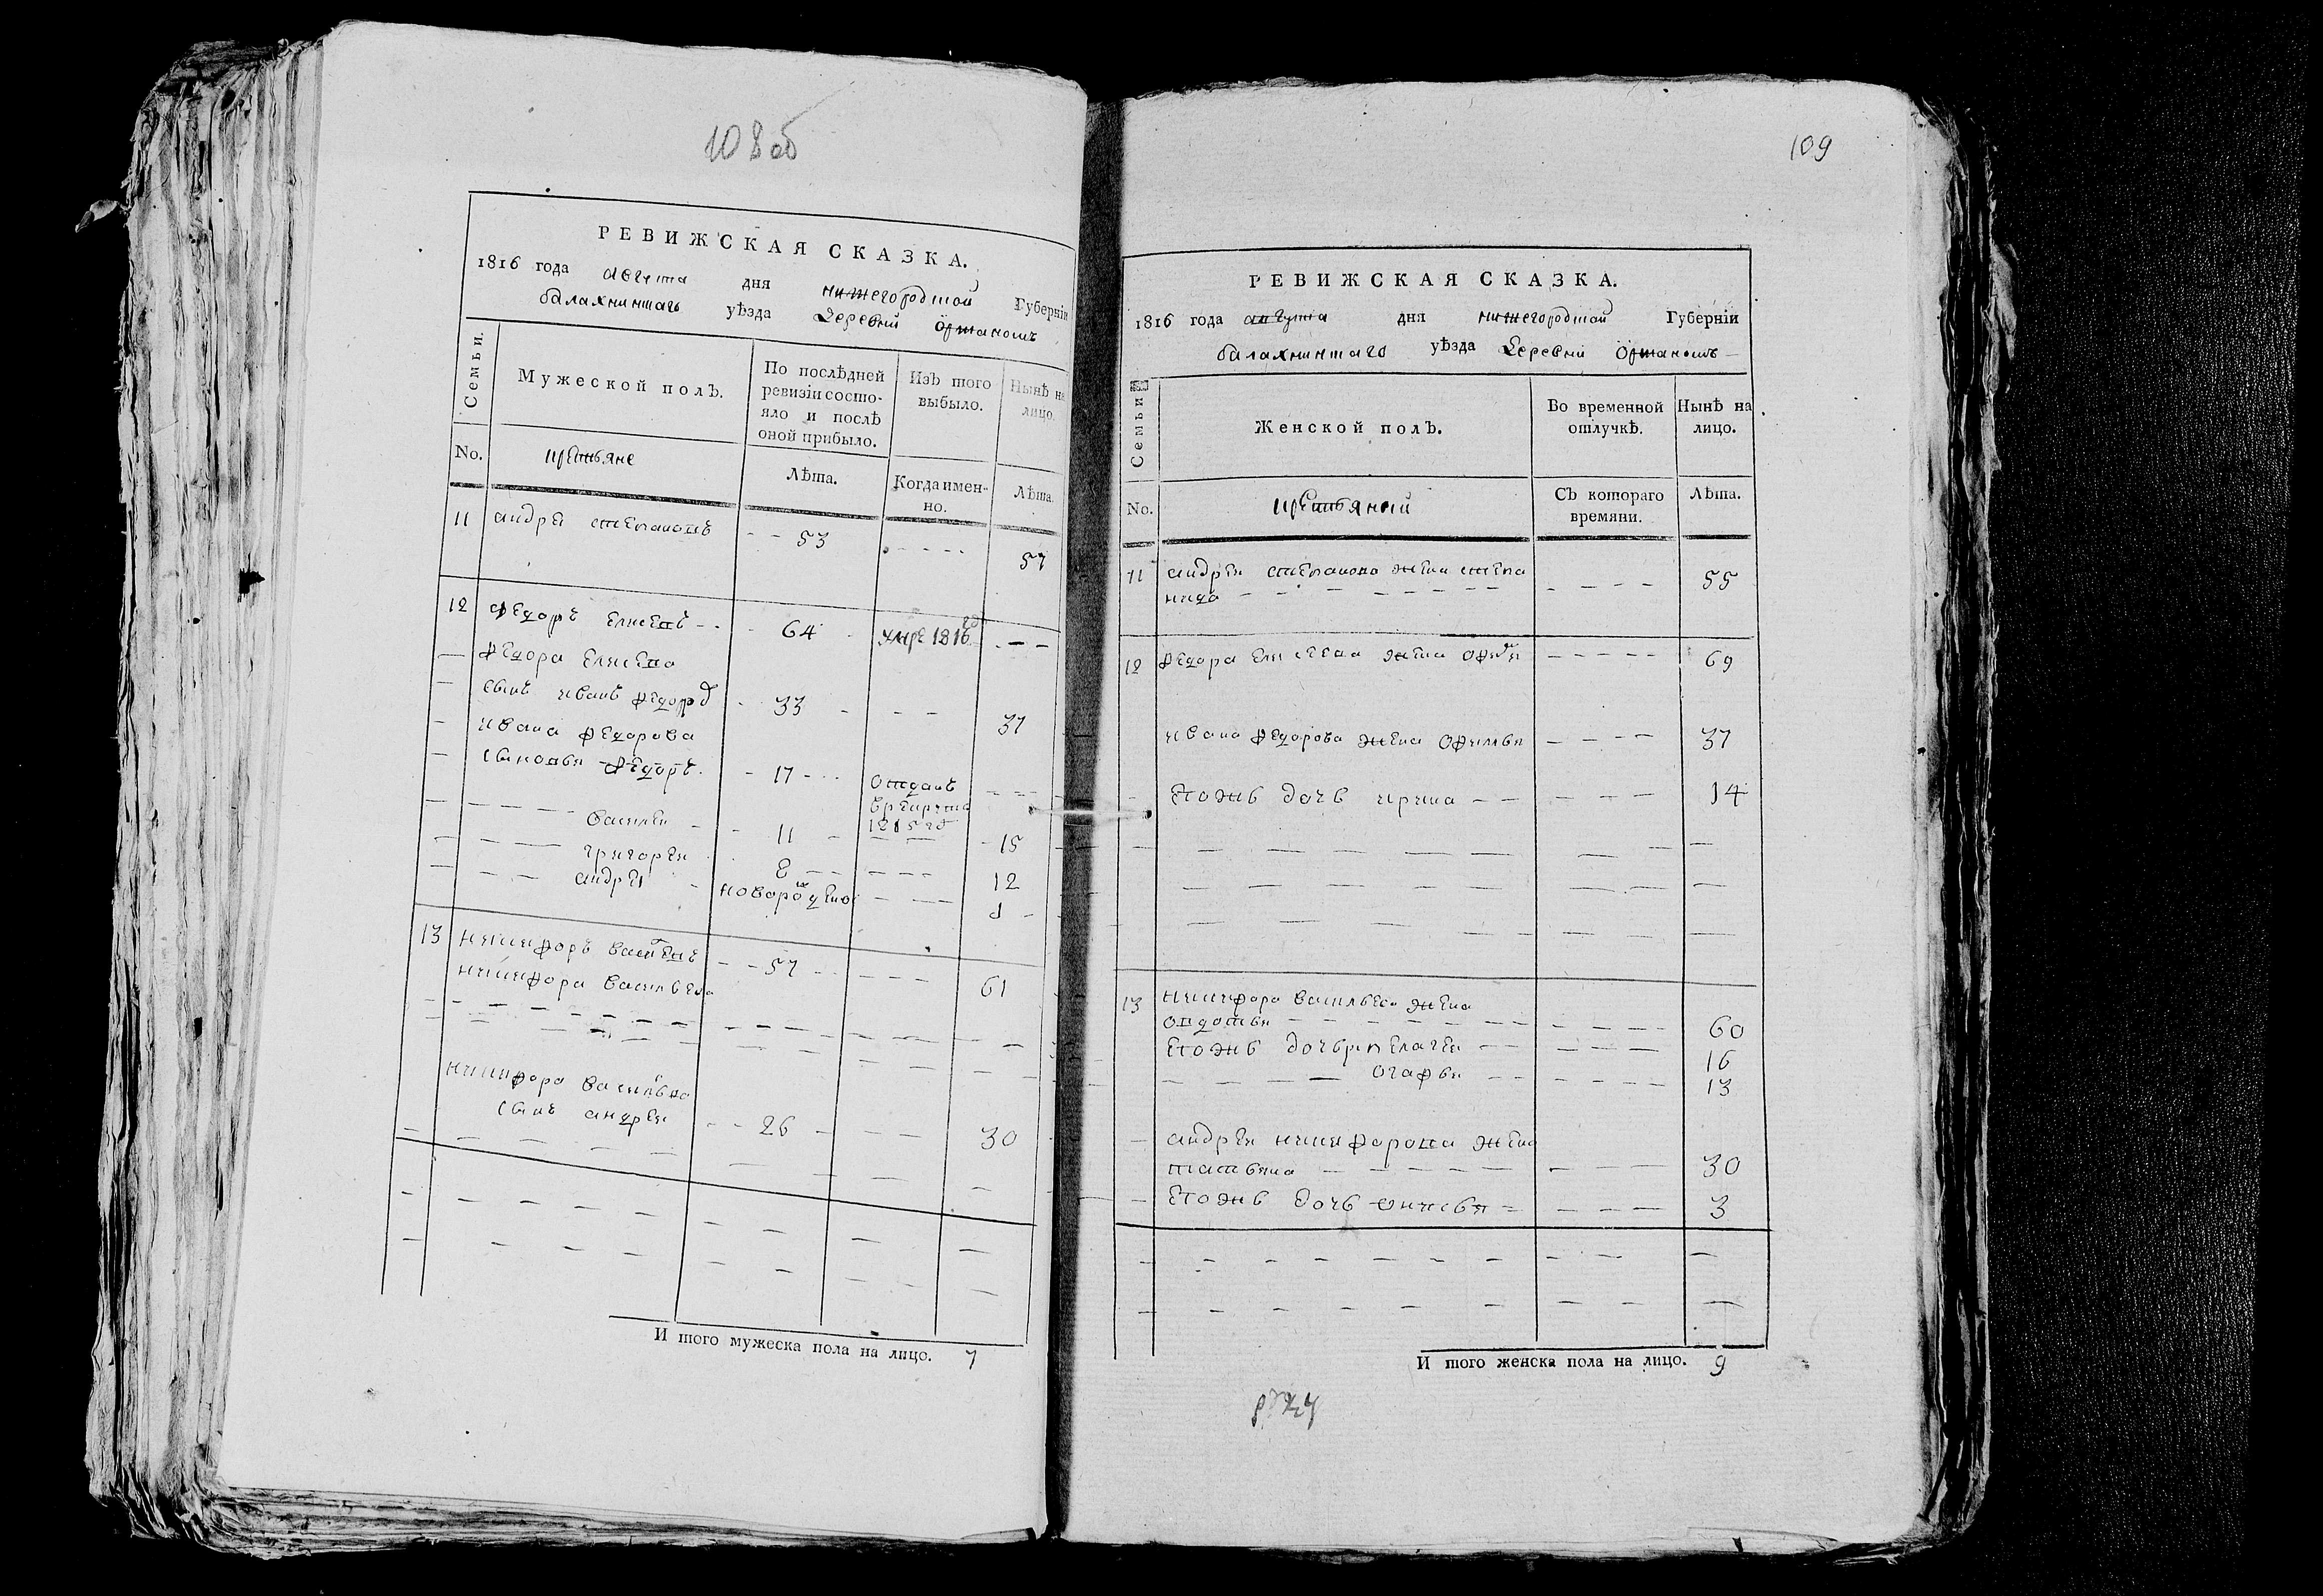 108об
РЕВИЖСКАЯ СКАЗКА.
1816 года августа дня нижегородской Губерніи
балахнинскаго уѣзда деревни
Семьи.
Мужеской полъ.
По послѣдней ревизіи состо-
яло и послѣ оной прибыло.
Изъ того выбыло.
Нынѣ на лицо.
No.
крестьяне
Лѣта.
Когда имен-
но.
Лѣта.
11 андреи степановъ - - 53 - - - - 57
12 федоръ елисеевъ - - 64 умре 1816 го - - -
федора елисеева
сынъ иванъ федоров - 33 - - - 37
ивана федорова
сыновья федоръ - 17 - - отданъ
в рекруты
1815 го
василеи - 11 - - - 15
григореи 8 - - - - 12
андреи новорожденои - - - 1
13 никифоръ васильевъ - - 57 - - - - 61
никифора васильева
никифора васильева
сынъ андреи - - 26 - - - 30
И того мужеска пола на лицо. 7
109
РЕВИЖСКАЯ СКАЗКА.
1816 года августа дня нижегородской Губерніи
балахнинскаго уѣзда деревни
Семьи
Женской полъ.
Во временной
отлучкѣ.
Нынѣ на
лицо.
No.
крестьянкии
Съ котораго
времяни.
Лѣта.
11 андреи степанова жена степа
нида - - - - 55
12 федора елисеева жена - - - - - 69
ивана федорова жена офимья - - - - 37
егожъ дочь ирина - - - - - - 14
13 никифора васильева жена
овдотья - - - - 60
егожъ дочери пелагеи - - - - - 16
огафья - - - - - - 13
андрея никифорова жена
татьяна - - - - 30
егожъ дочь - - - - 3
И того женска пола на лицо. 9